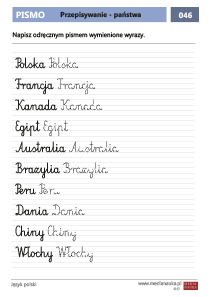 PISMO Przepisywanie - państwa 046
Napisz odręcznym pismem wymienione wyrazy.
Polska Polska
Francja Francja
Kanada Kanada
Egipt Egipt
Australia Australia
Brazylia Brazylia
Peru Peru
Dania Dania
Chiny Chiny
Włochy Włochy
Język polski www.medianauka.pl